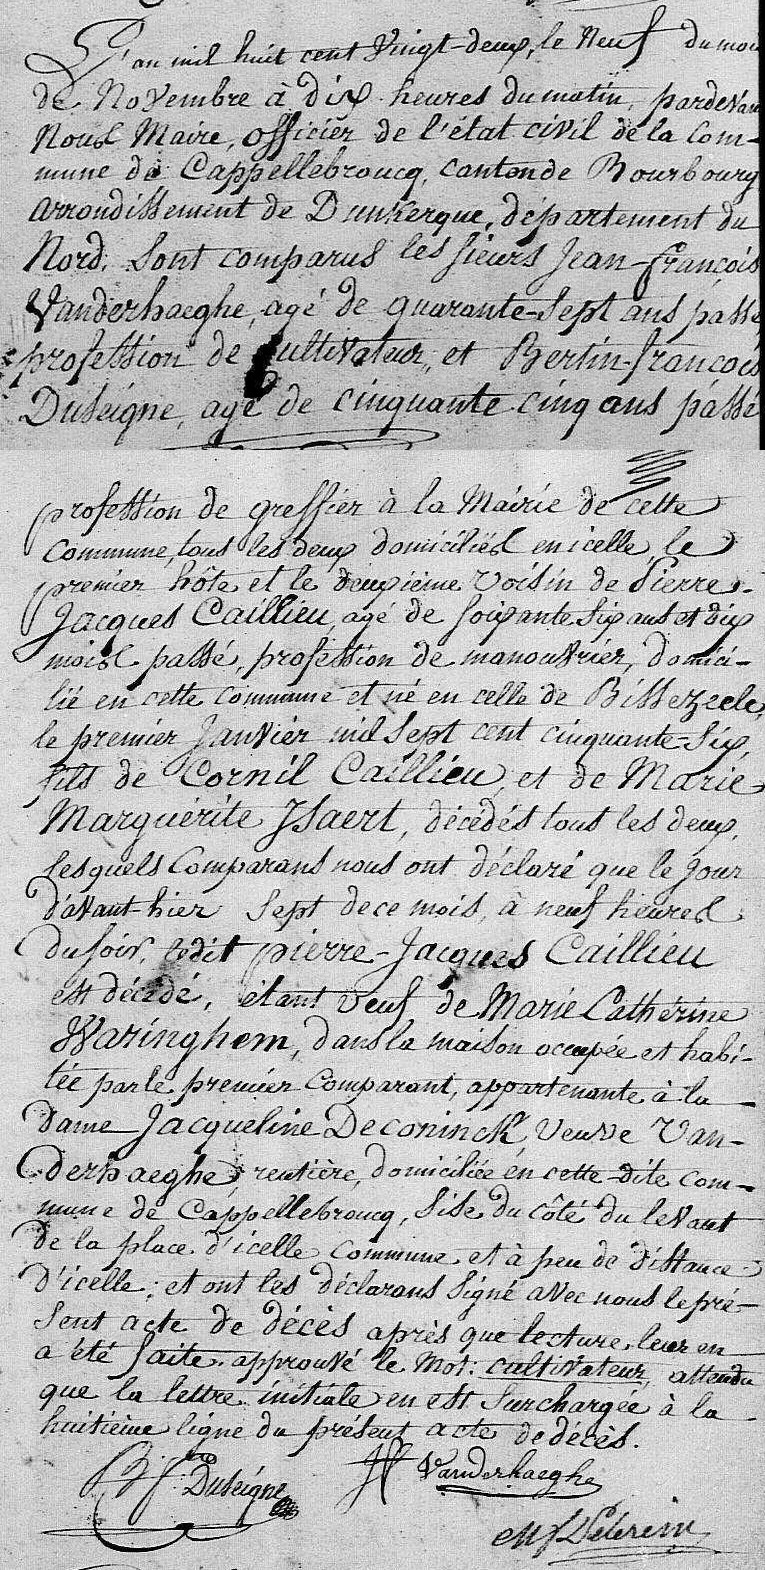 L'an mil huit cent Vingt-deux, le Neuf du mois
de Novembre à dix heures du matin, pardevan
Nous Maire, officier de l'état civil de la Com-
mune de Cappellebroucq, canton de Bourbourg
arrondissement de Dunkerque, département du
Nord. Sont comparus les sieurs Jean-françois
Vanderhaeghe, agé de quarante-sept ans passé
profession de cultivateur, et Bertin-françois
Duseigne, agé de cinquante cinq ans passé
profession de greffier à la Mairie de cette
Commune, tous les deux domiciliés en icelle, le
premier hôte et le deuxième voisin de Pierre-
Jacques Caillieu, agé de soixante six ans et dix
mois passé, profession de manouvrier, domici-
lié en cette commune et né en celle de Bissezeele,
le premier Janvier mil sept cent cinquante-six,
fils de Cornil Caillieu, et de Marie
Marguérite Isaert, décédés tous les deux,
lesquels Comparans nous ont déclaré que le jour
d'avant-hier sept de ce mois, à neuf heures
du soir, ledit pierre-Jacques Caillieu
est décédé, étant veuf de Marie Cathérine
Waringhem, dans la maison occupée et habi-
tée par le premier Comparant, appartenante à la
dame Jacqueline Deconinck, Veuve Van-
derhaeghe, rentière, domiciliée en cette dite com-
mune de Cappellebroucq, sise du côté du levant
de la place d'icelle Commune et à peu de distance
d'icelle; et ont les déclarans signé avec nous le pré-
sent acte de décès après que lecture leur en
a été faite. approuvé le Mot: cultivateur, attendu
que la lettre initiale en est surchargée à la
huitième ligne du présent acte de décès.
Bf Duseigne Jf Vanderhaeghe
Pélerin